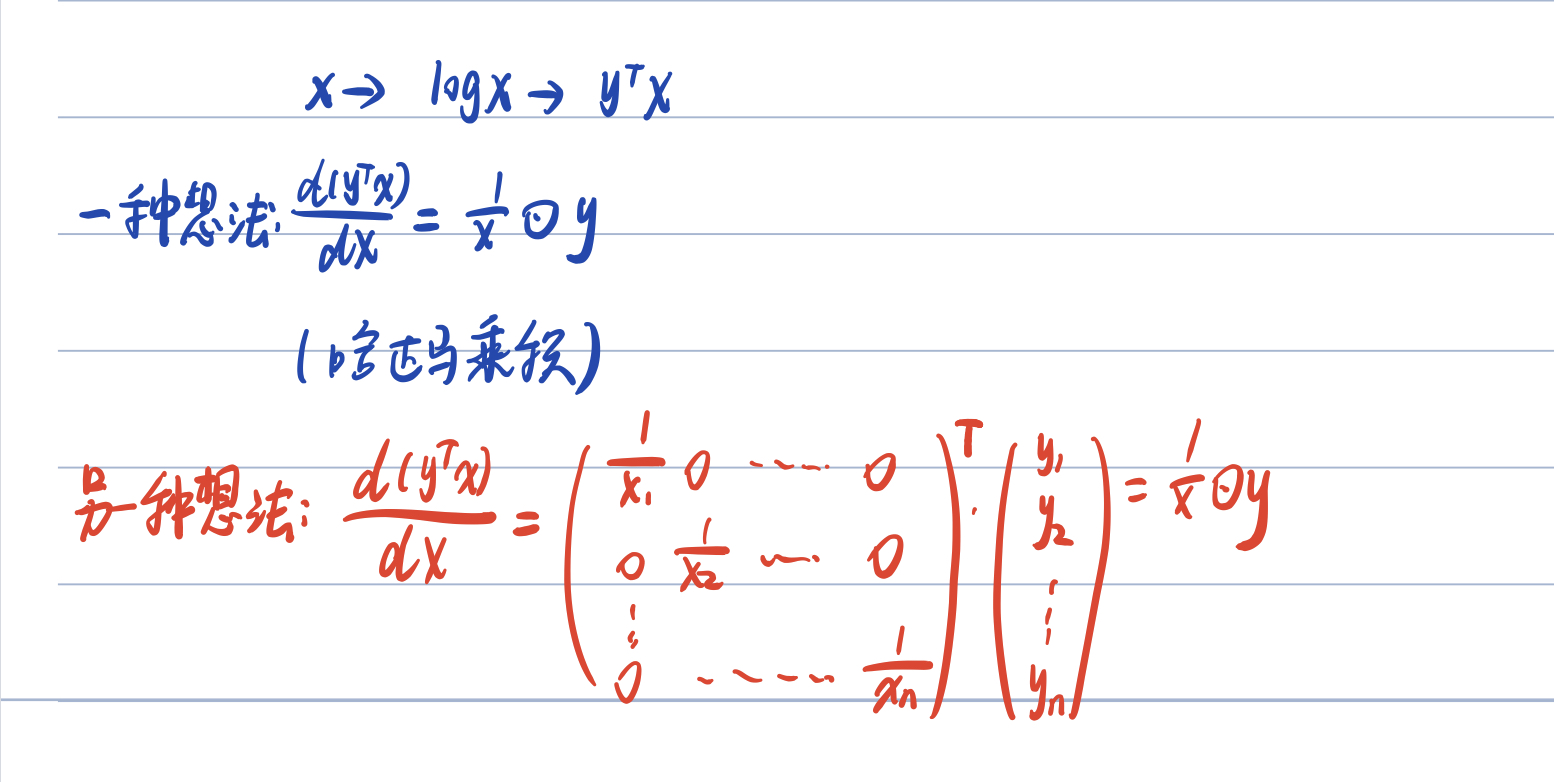 x → log x → yᵀx
一种想法: d(yᵀx)/dx = 1/x ⊙ y
(哈达马乘积)
另一种想法: d(yᵀx)/dx = (1/x₁ 0 ⋯⋯ 0
0 1/x₂ ⋯ 0
⋮
0 ⋯⋯ 1/xₙ)ᵀ · (y₁ y₂ ⋮ yₙ) = 1/x ⊙ y